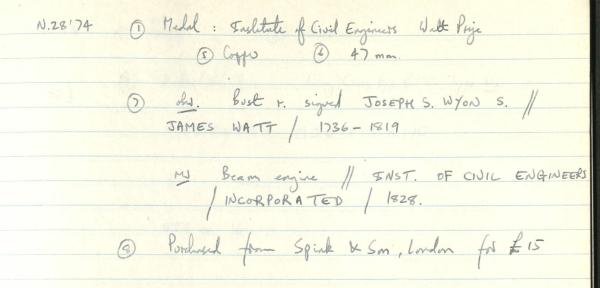 N.28'74 ① Medal : Institute of Civil Engineers Watt Prize
⑤ Copper ⑥ 47 mm.
⑦ obv. Bust r. signed JOSEPH S. WYON S. //
JAMES WATT / 1736 – 1819
rev Beam engine // INST. OF CIVIL ENGINEERS
/ INCORPORATED / 1828.
⑧ Purchased from Spink & Son, London for £15